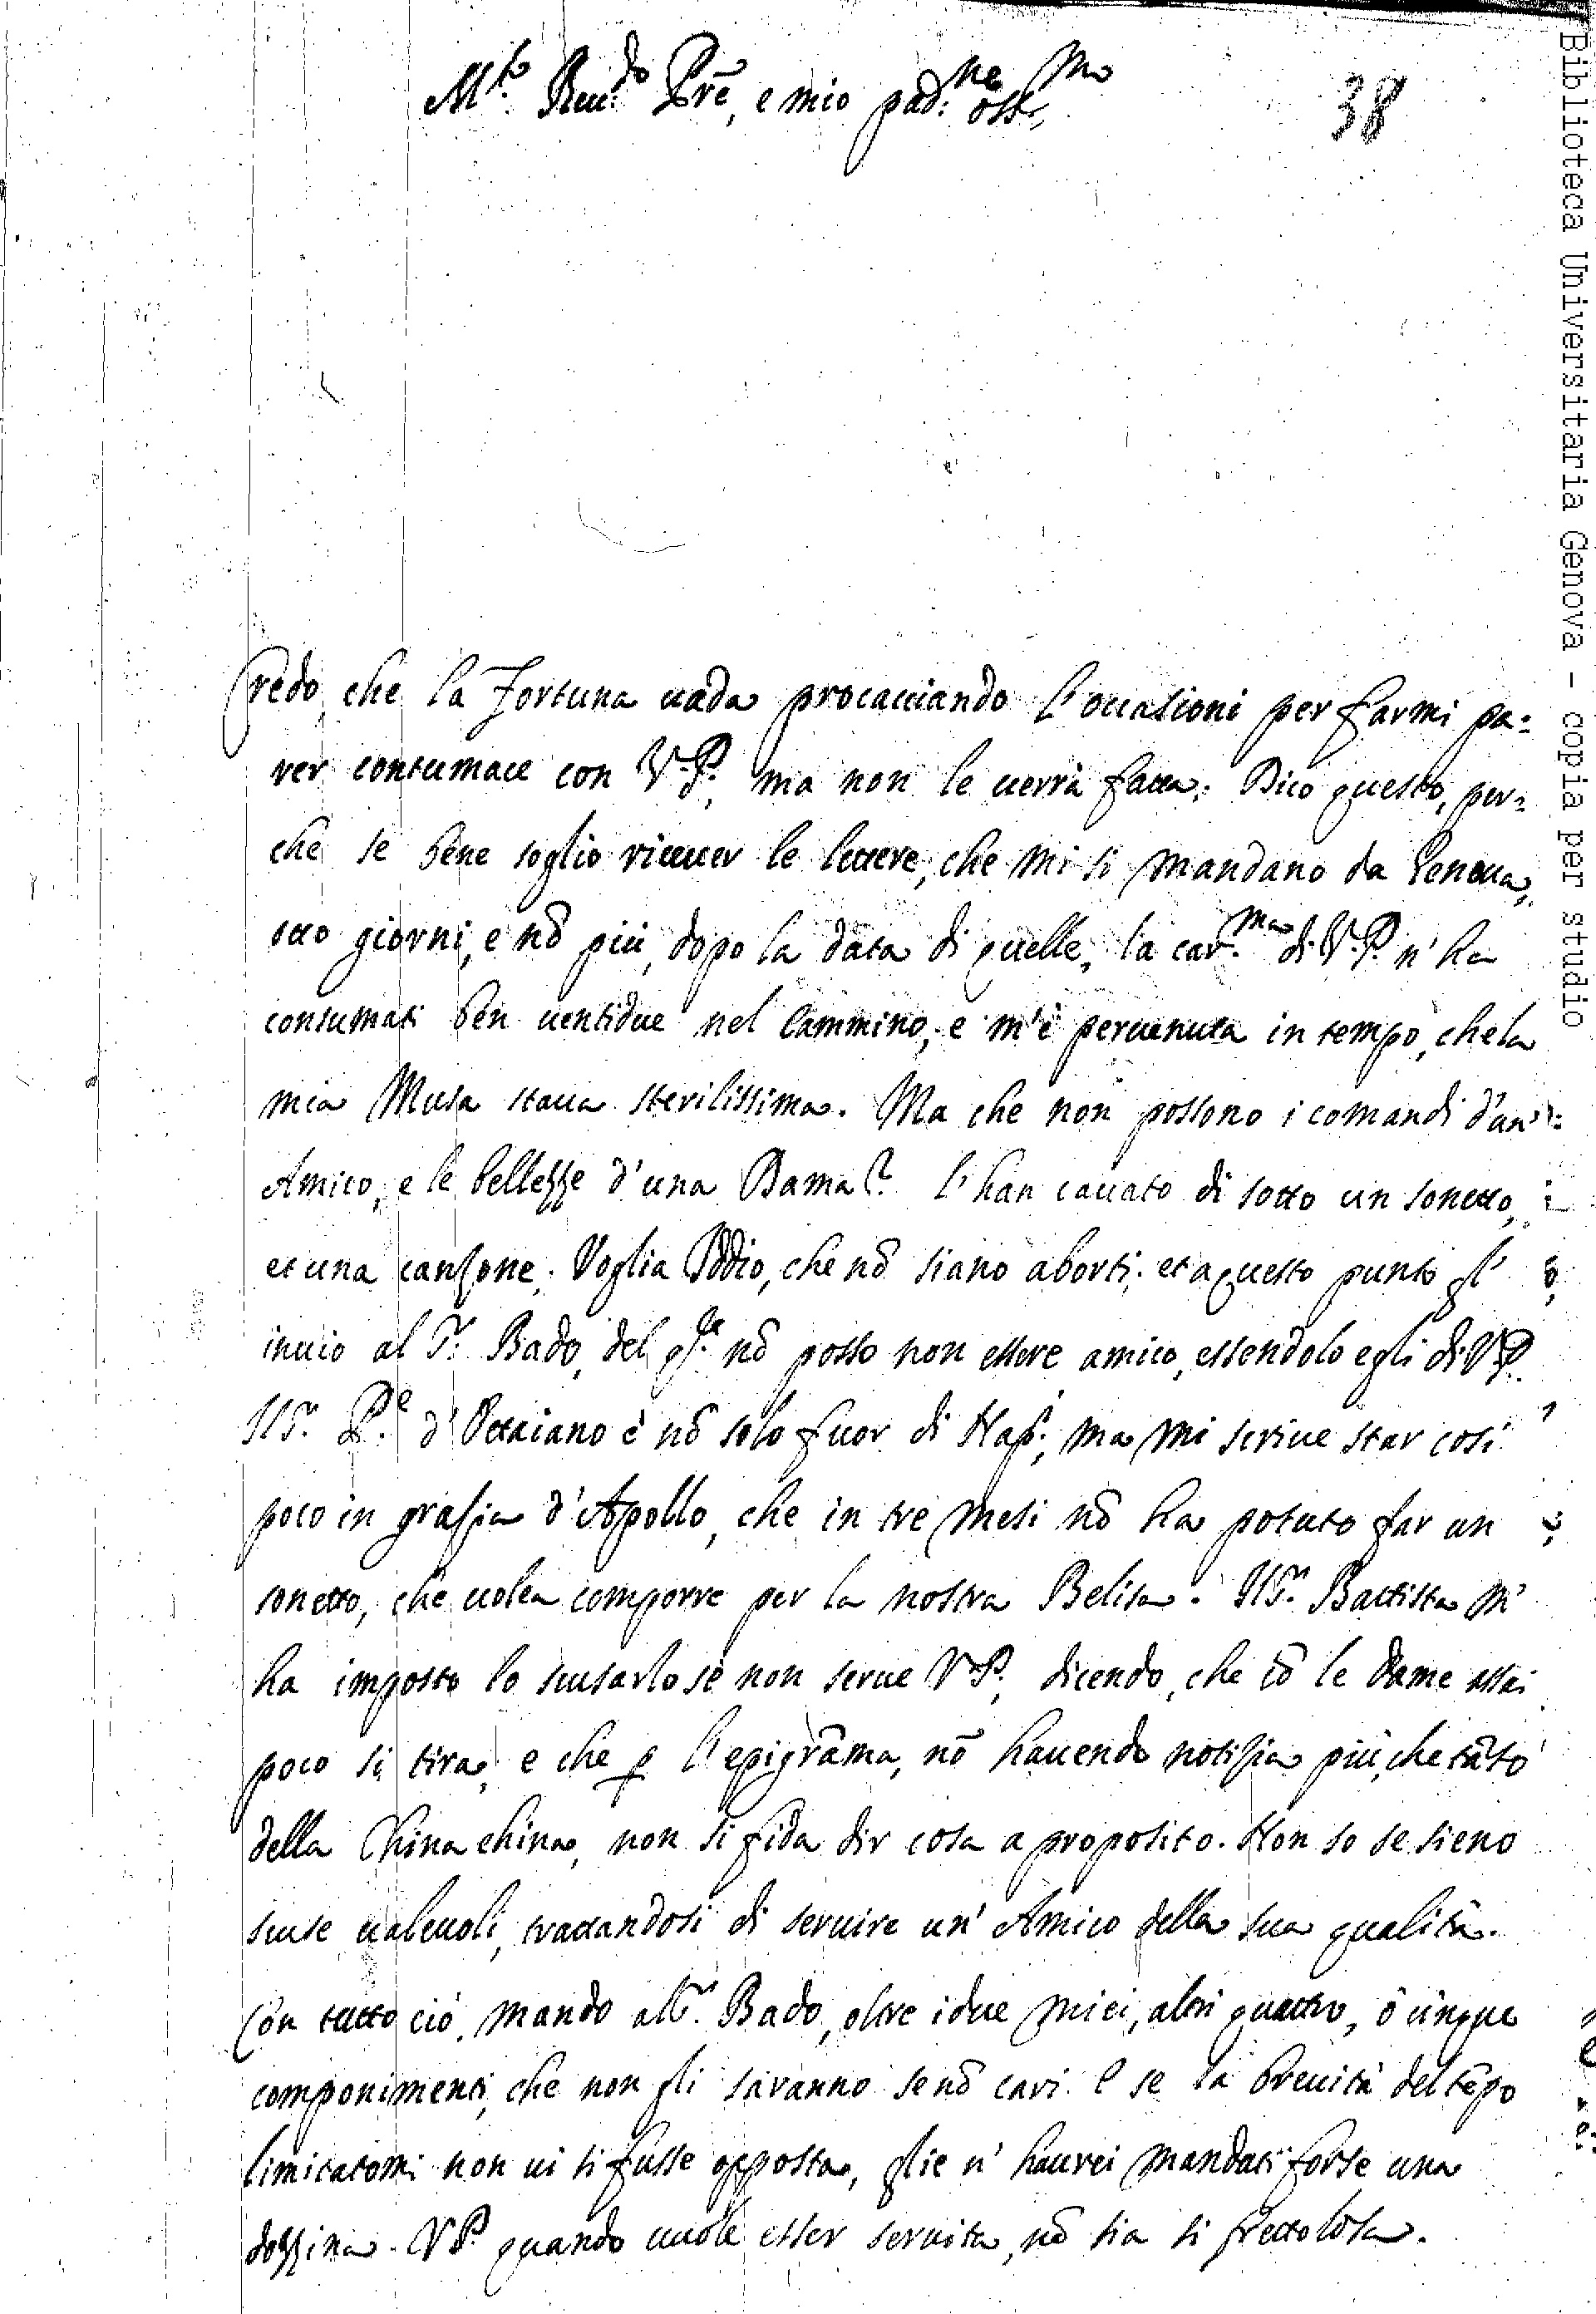 M.to Reu:do Prē, e mio pad:ne oss:mo
38
Credo che la Fortuna uada procacciando l'occasioni per farmi pa=
rer contumace con V.P., ma non le uerrà fatta. Dico questo, per=
che se bene soglio riceuer le lettere, che mi si mandano da Genoua,
otto giorni, e nō più, dopo la data di quelle, la car.ma di V.P. n'ha
consumati ben uentidue nel cammino, e m'è peruenuta in tempo, che la
mia Musa staua sterilissima. Ma che non possono i comandi d'un
Amico, e le bellezze d'una Dama? l'han cauato di sotto un sonetto,
et una canzone. Voglia Iddio, che nō siano aborti. et a questo punto gl'
inuio al Sr. Bado, del qle. nō posso non essere amico, essendolo egli di V.P.
Il Sr. P.e d'Ottaiano è nō solo fuor di Nap.i, ma mi scriue star così
poco in grazia d'Apollo, che in tre mesi nō ha potuto far un
sonetto, che uolea comporre per la nostra Belisa. Il Sr. Battista m'
ha imposto lo scusarlo se non serue V.P., dicendo, che cō le Dame assai
poco si tira, e che p l'epigrāma, nō hauendo notizia più, che tāto
della China china, non si fida dir cosa a proposito. Non so se sieno
scuse ualeuoli, trattandosi di seruire un' Amico della sua qualità.
Con tutto ciò, mando al Sr. Bado, oltre i due miei, altri quattro, ò cinque
componimenti, che non gli saranno se nō cari. E se la breuità del tēpo
limitatomi non ui si fusse opposta, glie n' haurei mandati forse una
dozzina. V.P. quando uuole esser seruita, nō sia sì frettolosa.
Biblioteca Universitaria Genova - copia per studio